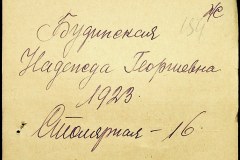 Будинская
Надежда Георгиевна
1923.
Столярная - 16.